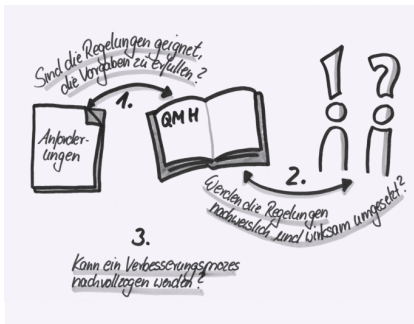 Sind die Regelungen geignet,
die Vorgaben zu erfüllen?
1.
Anforder-
ungen
QMH
! ?
2.
Werden die Regelungen
nachweislich und wirksam umgesetzt?
3.
Kann ein Verbesserungsprozes
nachvollzogen werden?